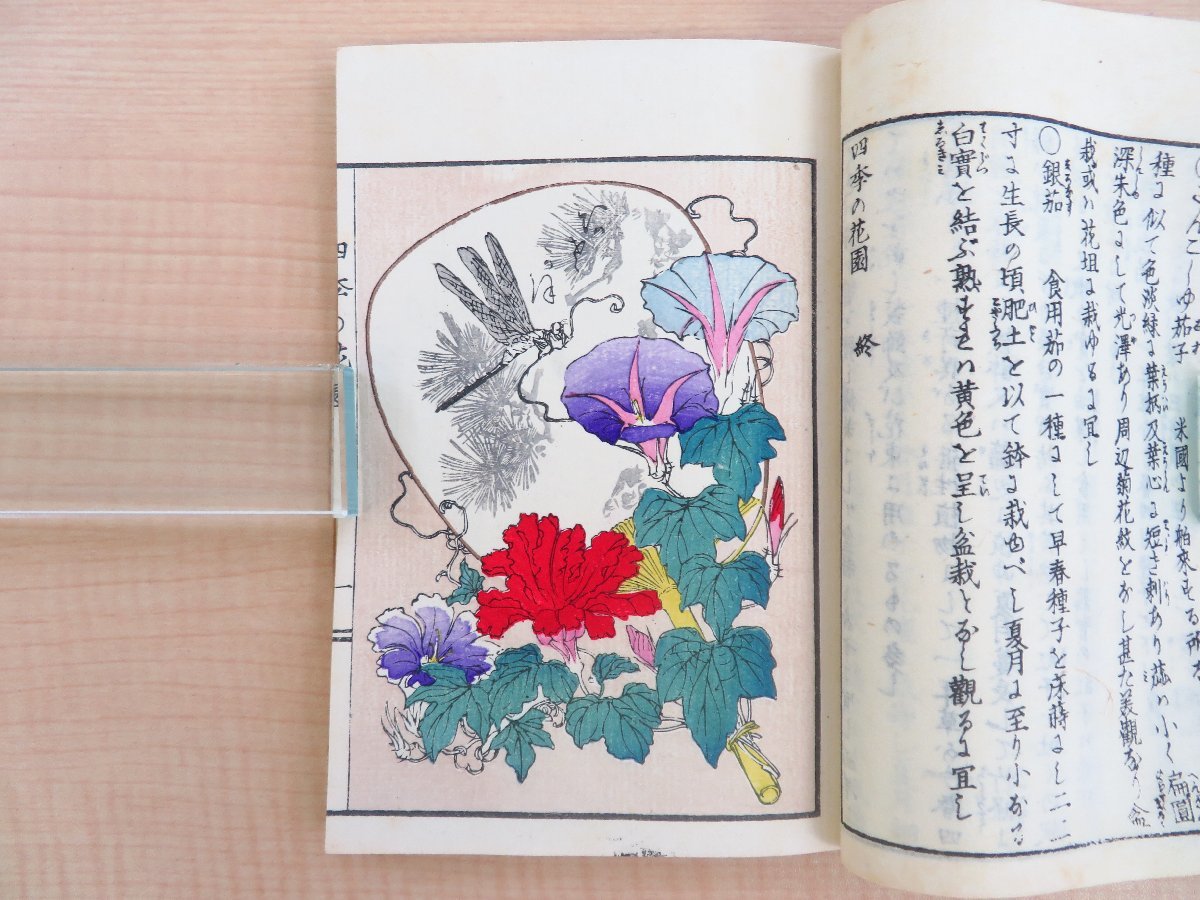 しゆ茄子 米國より舶來する所
種に似て色淡緑に葉柄及葉心に短き刺あり蔬ハ小く扁圓
深朱色にして光澤あり周辺菊花紋をなし甚た美觀なり
栽或ハ花坦に栽ゆるに宜し
○銀茄 食用茄の一種にして早春種子を床蒔にし二三
寸に生長の頃肥土を以て鉢に栽ゆべし夏月に至り小なる
白實を結ぶ熟すれハ黄色を呈し盆栽となし觀るに宜し
四季の花園 終
四季の花